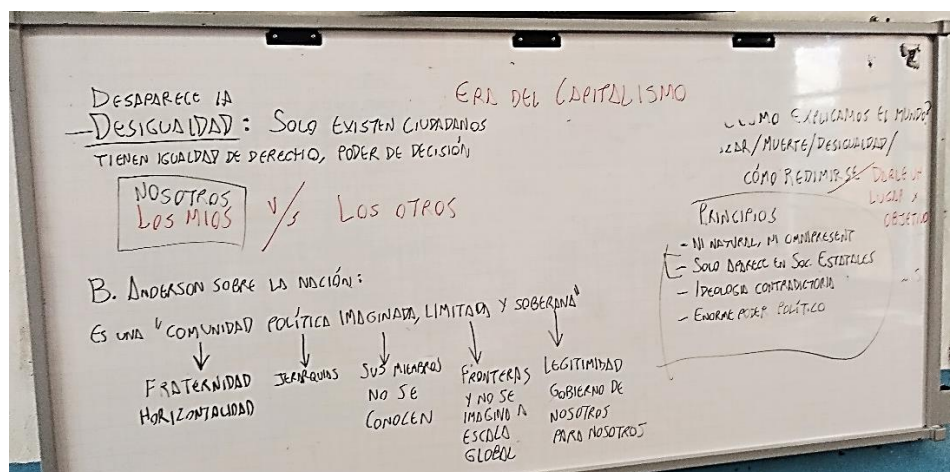 ERA DEL CAPITALISMO
DESAPARECE LA
DESIGUALDAD: SOLO EXISTEN CIUDADANOS
TIENEN IGUALDAD DE DERECHO, PODER DE DECISIÓN
NOSOTROS
LOS MIOS V/S LOS OTROS
B. ANDERSON SOBRE LA NACIÓN:
ES UNA "COMUNIDAD POLÍTICA IMAGINADA, LIMITADA Y SOBERANA"
FRATERNIDAD
HORIZONTALIDAD
JERARQUIAS
SUS MIEMBROS
NO SE
CONOCEN
FRONTERAS
Y NO SE
IMAGINA A
ESCALA
GLOBAL
LEGITIMIDAD
GOBIERNO DE
NOSOTROS
PARA NOSOTROS
EXPLICAMOS EL MUNDO?
/MUERTE/DESIGUALDAD/
CÓMO REDIMIRSE
LUGAR X
OBJETIVO
PRINCIPIOS
- NI NATURAL, NI OMNIPRESENT
- SOLO APARECE EN SOC. ESTATALES
- IDEOLOGIA CONTRADICTORIA
- ENORME PODER POLÍTICO